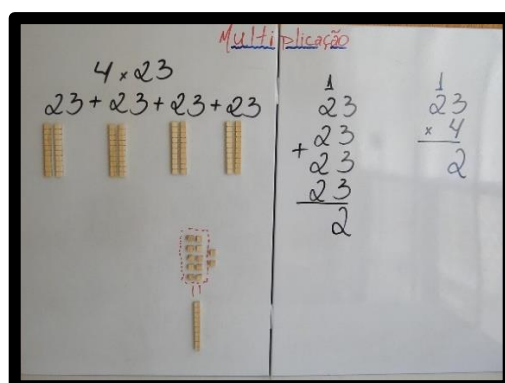 Multiplicação
4 x 23
23 + 23 + 23 + 23
1
23
23
+ 23
23
2
1
23
x 4
2